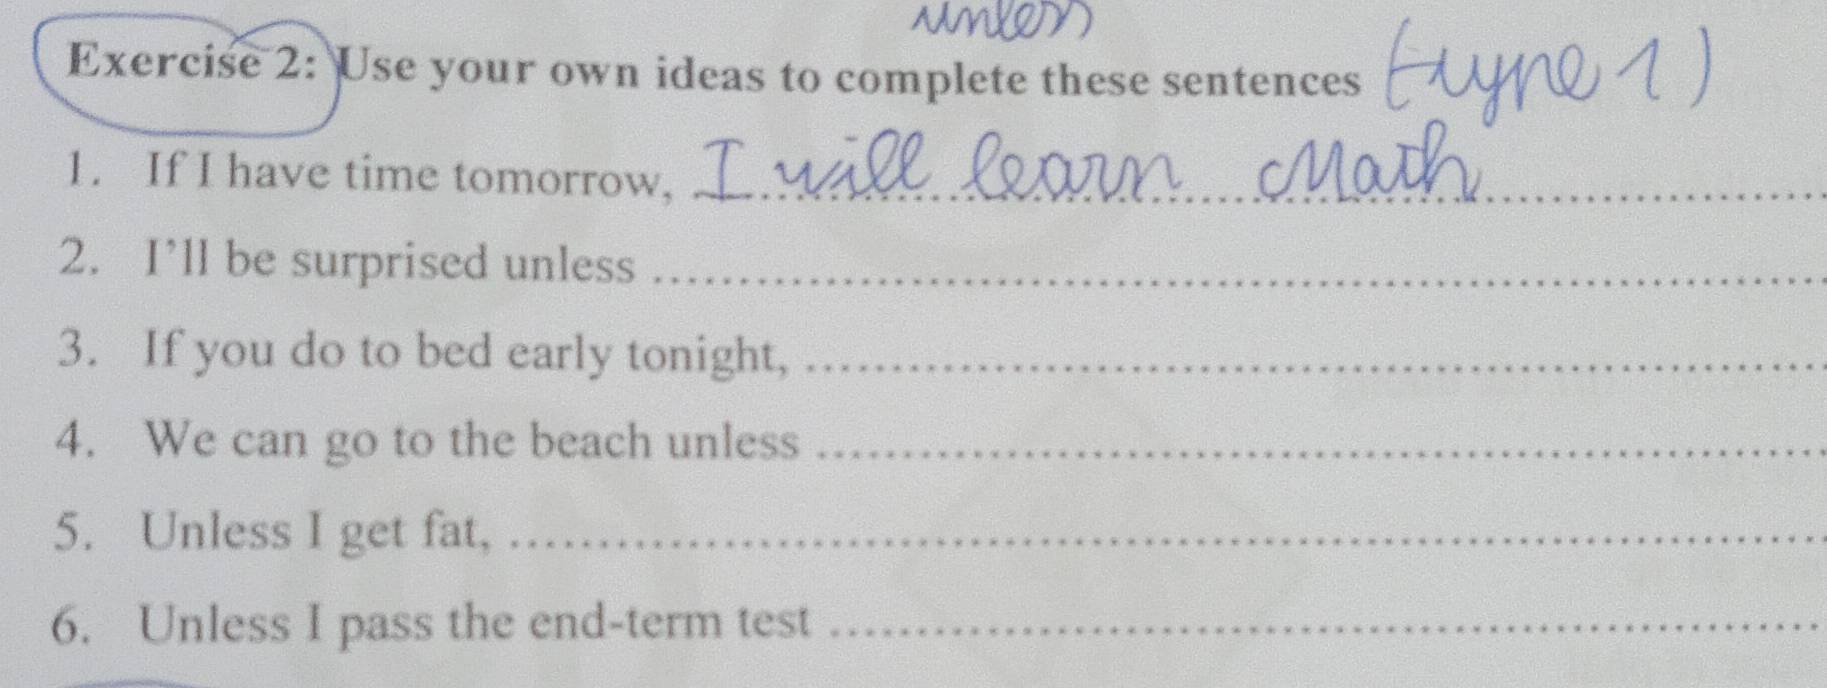 unless
Exercise 2: Use your own ideas to complete these sentences (type 1)
1. If I have time tomorrow, I will learn Math
2. I'll be surprised unless ........................................
3. If you do to bed early tonight, ........................................
4. We can go to the beach unless ........................................
5. Unless I get fat, ........................................
6. Unless I pass the end-term test ........................................